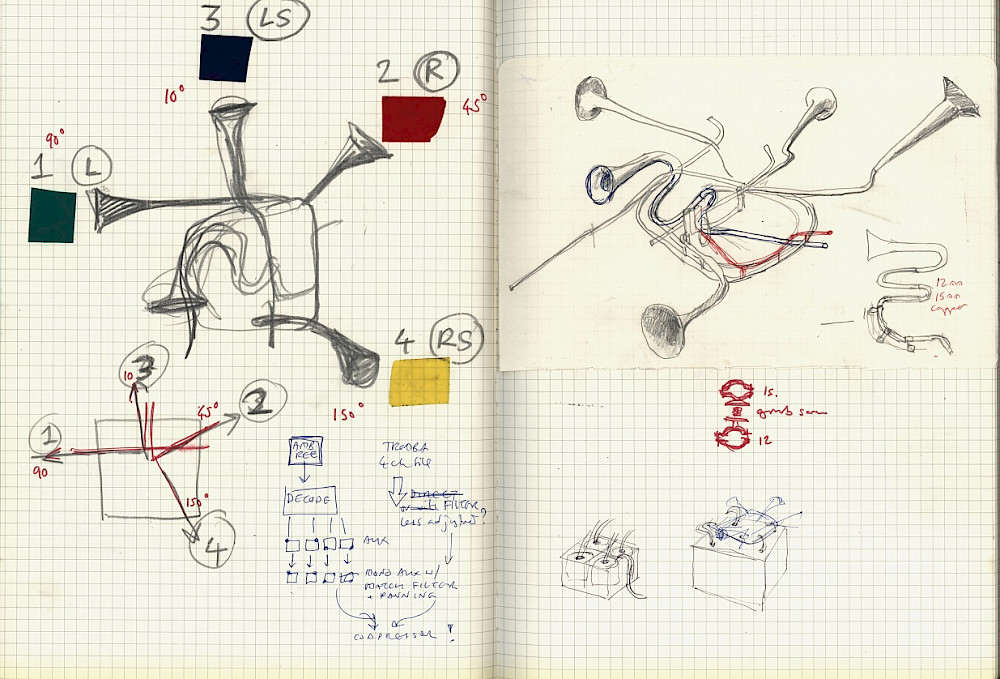 3 LS
2 R
10°
45°
90°
1 L
4 RS
150°
3
10
2
45°
1
90
150°
4
DECODE
AUX
MONO AUX W/
MATCH FILTER
+ PANNING
COMPRESSOR !
TROMBA
4 ch file
DIRECT
FILTER,
less adjusted?
12mm
15mm
copper
15.
grub screw
12